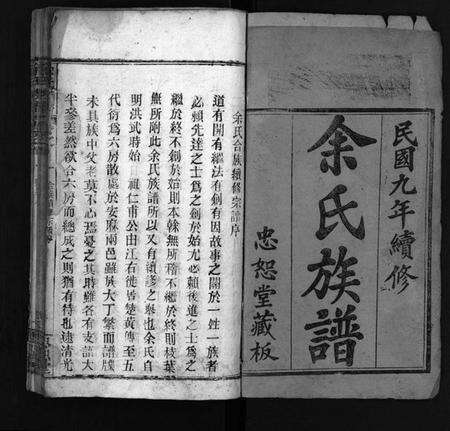 民國九年續修
余氏族譜
忠恕堂藏板
余氏合族續修宗譜序
道有開有繼法有創有因故事之關於一姓一族者
必賴先達之士爲之創於始尤必賴後進之士爲之
繼於終不創於始則本榦無所稽不繼於終則枝葉
無所附此余氏族譜所以又有續修之舉也余氏自
明洪武時始祖仁甫公由江右徙居楚黃傳至五
代衍爲六房散處於安麻兩邑雖族大丁繁而譜牒
未具族中父老莫不心焉憂之其時雖各有支譜大
半參差然欲合六房而總成之則猶有待也迨清光